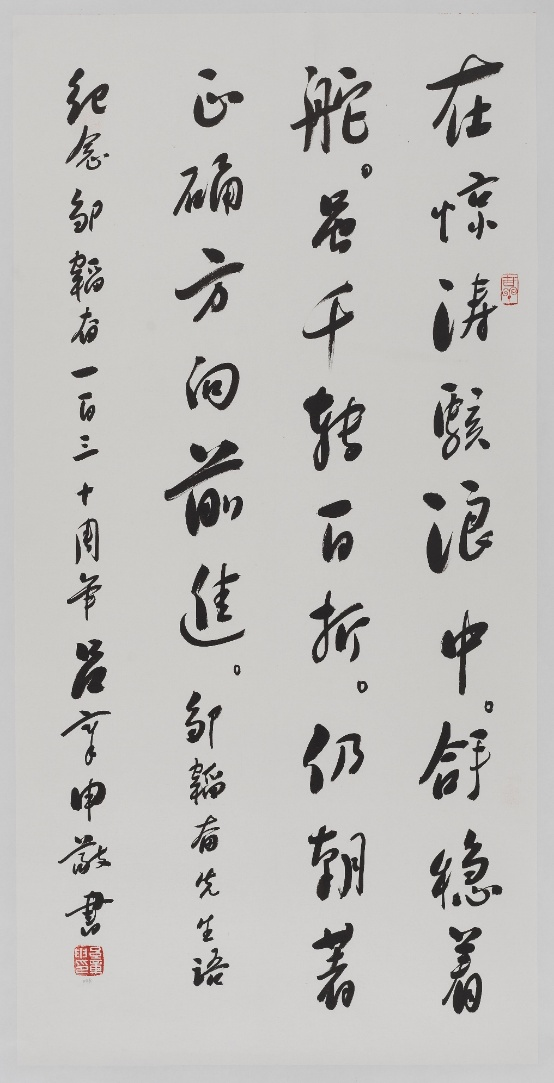 在惊涛駭浪中。拿稳着
舵。虽千转百折。仍朝著
正确方向前進。邹韜奋先生语
纪念邹韜奋一百三十周年吕章申敬書